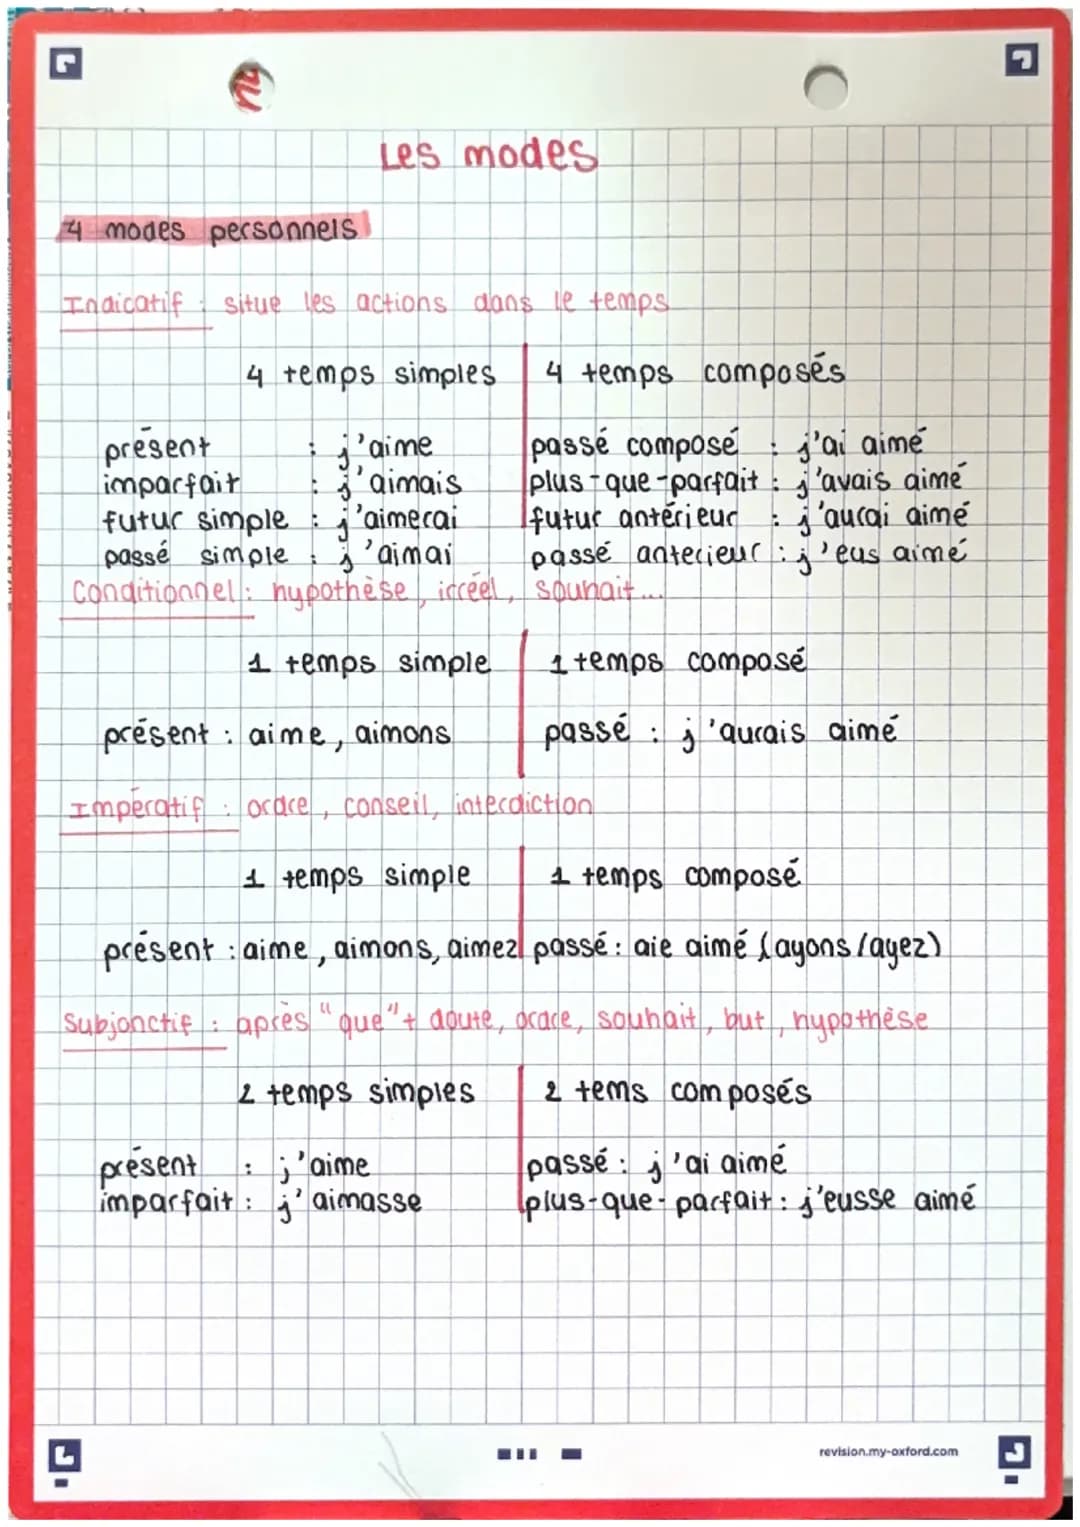 Les modes
4 modes personnels
Indicatif : situe les actions dans le temps
4 temps simples 4 temps composés
présent : j'aime passé composé : j'ai aimé
imparfait : j'aimais plus-que-parfait : j'avais aimé
futur simple : j'aimerai futur antérieur : j'aurai aimé
passé simple : j'aimai passé antérieur : j'eus aimé
Conditionnel : hypothèse, irréel, souhait...
1 temps simple 1 temps composé
présent : aime, aimons passé : j'aurais aimé
Impératif : ordre, conseil, interdiction
1 temps simple 1 temps composé
présent : aime, aimons, aimez passé : aie aimé (ayons/ayez)
Subjonctif : après "que" + doute, ordre, souhait, but, hypothèse
2 temps simples 2 tems composés
présent : j'aime passé : j'ai aimé
imparfait : j'aimasse plus-que-parfait : j'eusse aimé
revision.my-oxford.com